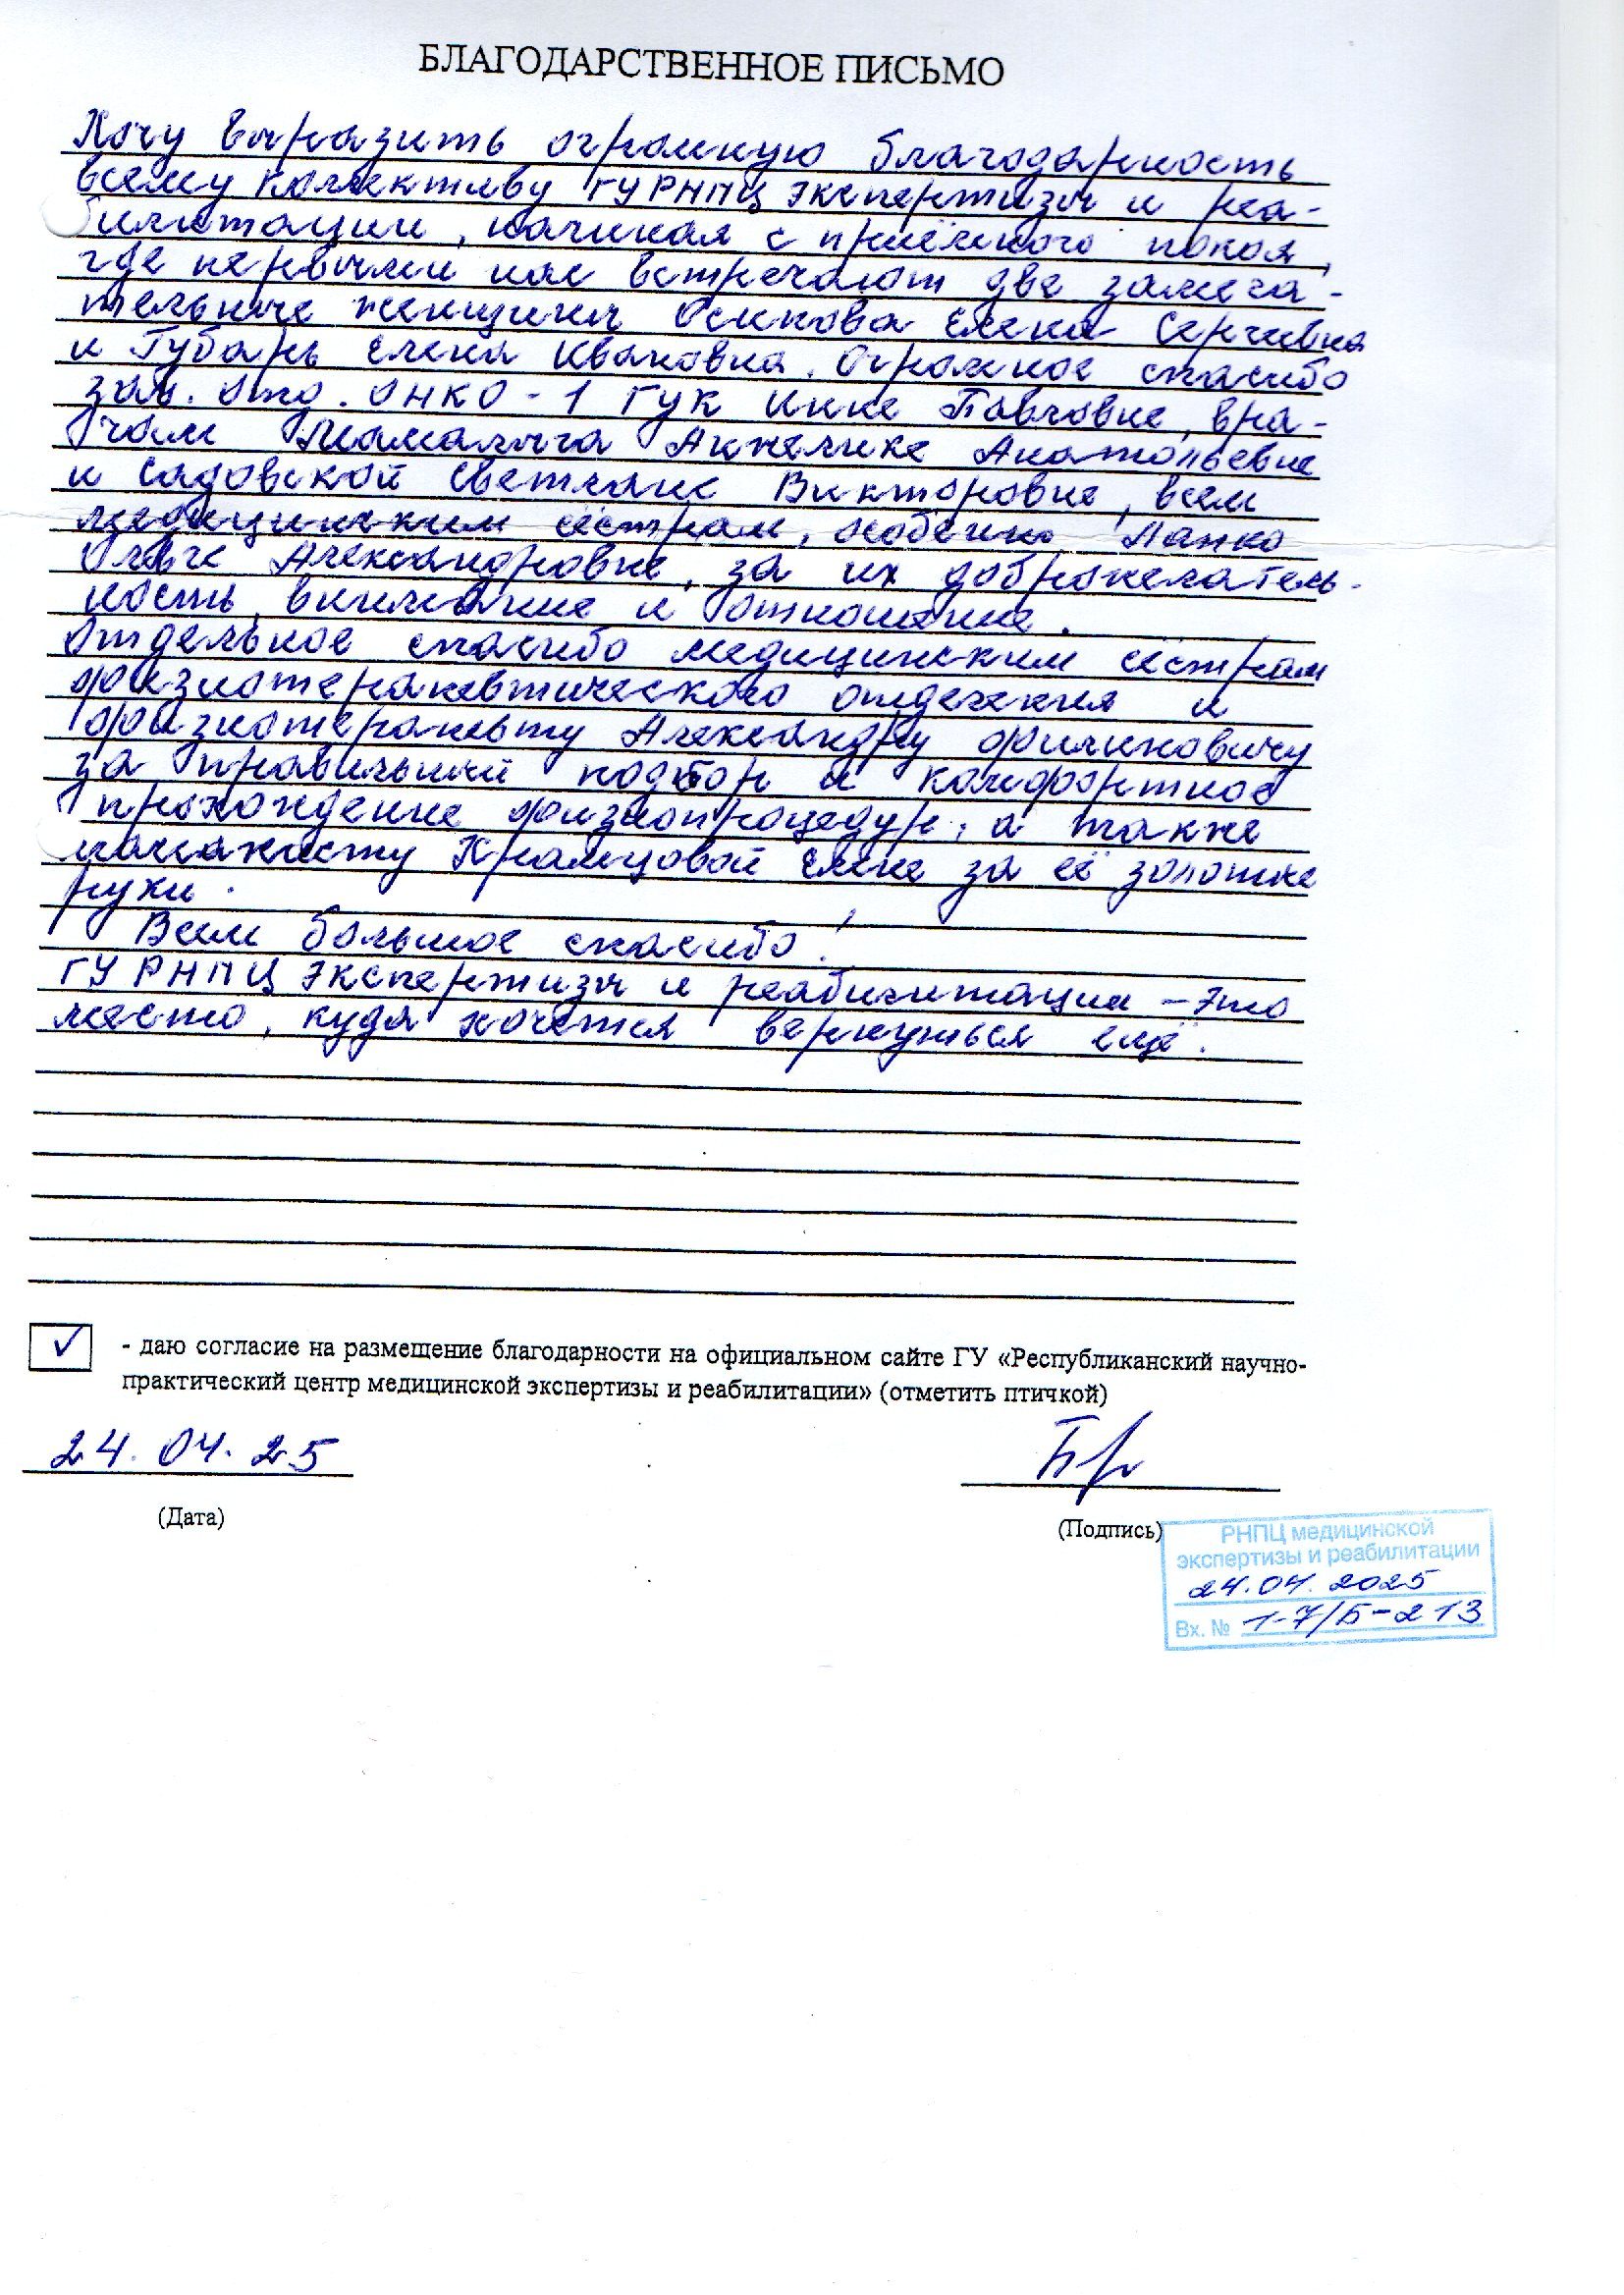 БЛАГОДАРСТВЕННОЕ ПИСЬМО
Хочу выразить огромную благодарность
всему коллективу ГУ РНПЦ экспертизы и реа-
билитации, начиная с приёмного покоя,
где первыми нас встречают две замеча-
тельные женщины Осипова Елена Сергеевна
и Губарь Елена Ивановна. Огромное спасибо
зав. отд. ОНКО-1 Гук Инне Павловне, вра-
чам Мамалыга Анжелике Анатольевне
и Садовской Светлане Викторовне, всем
медицинским сёстрам, особенно Панко
Ольге Александровне, за их доброжелатель-
ность, внимание и отношение.
Отдельное спасибо медицинским сёстрам
физиотерапевтического отделения и
физиотерапевту Александру Филиповичу
за правильный подбор и комфортное
прохождение физиопроцедур, а также
массажисту Храмцовой Елене за её золотые
руки.
Всем большое спасибо!
ГУ РНПЦ экспертизы и реабилитации - это
место, куда хочется вернуться ещё.
✓ - даю согласие на размещение благодарности на официальном сайте ГУ «Республиканский научно-
практический центр медицинской экспертизы и реабилитации» (отметить птичкой)
24.04.25
(Дата)
(Подпись)
РНПЦ медицинской
экспертизы и реабилитации
24.04.2025
Вх. № 1-7/Б-213